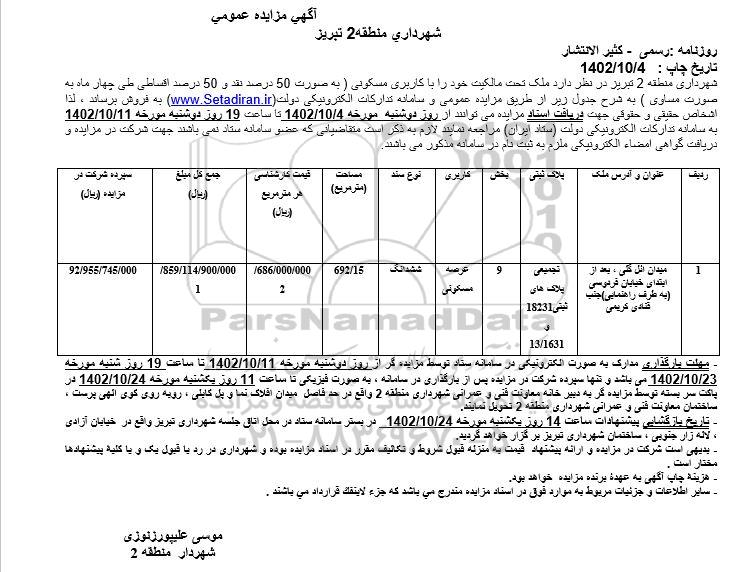 آگهي مزايده عمومي
شهرداري منطقه2 تبريز
روزنامه :رسمی - کثير الانتشار
تاريخ چاپ : 1402/10/4
شهرداری منطقه 2 تبریز در نظر دارد ملک تحت مالکیت خود را با کاربری مسکونی ( به صورت 50 درصد نقد و 50 درصد اقساطی طی چهار ماه به
صورت مساوی ) به شرح جدول زیر از طریق مزایده عمومی و سامانه تدارکات الکترونیکی دولت(www.Setadiran.ir) به فروش برساند ، لذا
اشخاص حقیقی و حقوقی جهت دریافت اسناد مزایده می توانند از روز دوشنبه مورخه 1402/10/4 تا ساعت 19 روز دوشنبه مورخه 1402/10/11
به سامانه تدارکات الکترونیکی دولت (ستاد ایران) مراجعه نمایند لازم به ذکر است متقاضیانی که عضو سامانه ستاد نمی باشند جهت شرکت در مزایده و
دریافت گواهی امضاء الکترونیکی ملزم به ثبت نام در سامانه مذکور می باشند.
ردیف عنوان و آدرس ملک پلاک ثبتی بخش کاربری نوع سند مساحت (مترمربع) قیمت کارشناسی هر مترمربع (ریال) جمع کل مبلغ (ریال) سپرده شرکت در مزایده (ریال)
1 میدان ائل گلی ، بعد از تجمیعی 9 عرصه ششدانگ 692/15 /686/000/000 /859/114/900/000 92/955/745/000
ابتدای خیابان فردوسی پلاک های مسکونی 2 1
(به طرف راهنمایی)جنب ثبتی18231
قنادی کریمی و
13/1631
ParsNamadData
- مهلت بارگذاری مدارک به صورت الکترونیکی در سامانه ستاد توسط مزایده گر از روز دوشنبه مورخه 1402/10/11 تا ساعت 19 روز شنبه مورخه
1402/10/23 می باشد و تنها سپرده شرکت در مزایده پس از بارگذاری در سامانه ، به صورت فیزیکی تا ساعت 11 روز یکشنبه مورخه 1402/10/24 در
پاکت سر بسته توسط مزایده گر به دبیر خانه معاونت فنی و عمرانی شهرداری منطقه 2 واقع در حد فاصل میدان افلاک نما و پل کابلی ، روبه روی کوی الهی پرست ،
ساختمان معاونت فنی و عمرانی شهرداری منطقه 2 تحویل نمایند.
- تاریخ بازگشایی پیشنهادات ساعت 14 روز یکشنبه مورخه 1402/10/24 در بستر سامانه ستاد در محل اتاق جلسه شهرداری تبریز واقع در خیابان آزادی
، لاله زار جنوبی ، ساختمان شهرداری تبریز بر گزار خواهد گردید.
- بدیهی است شرکت در مزایده و ارائه پیشنهاد قیمت به منزله قبول شروط و تکالیف مقرر در اسناد مزایده بوده و شهرداری در رد یا قبول یک و یا کلیة پیشنهادها
مختار است .
- هزینة چاپ آگهی به عهدة برنده مزایده خواهد بود.
- سایر اطلاعات و جزئیات مربوط به موارد فوق در اسناد مزایده مندرج می باشد که جزء لاینفك قرارداد می باشند .
موسی علیپورزنوزی
شهردار منطقه 2